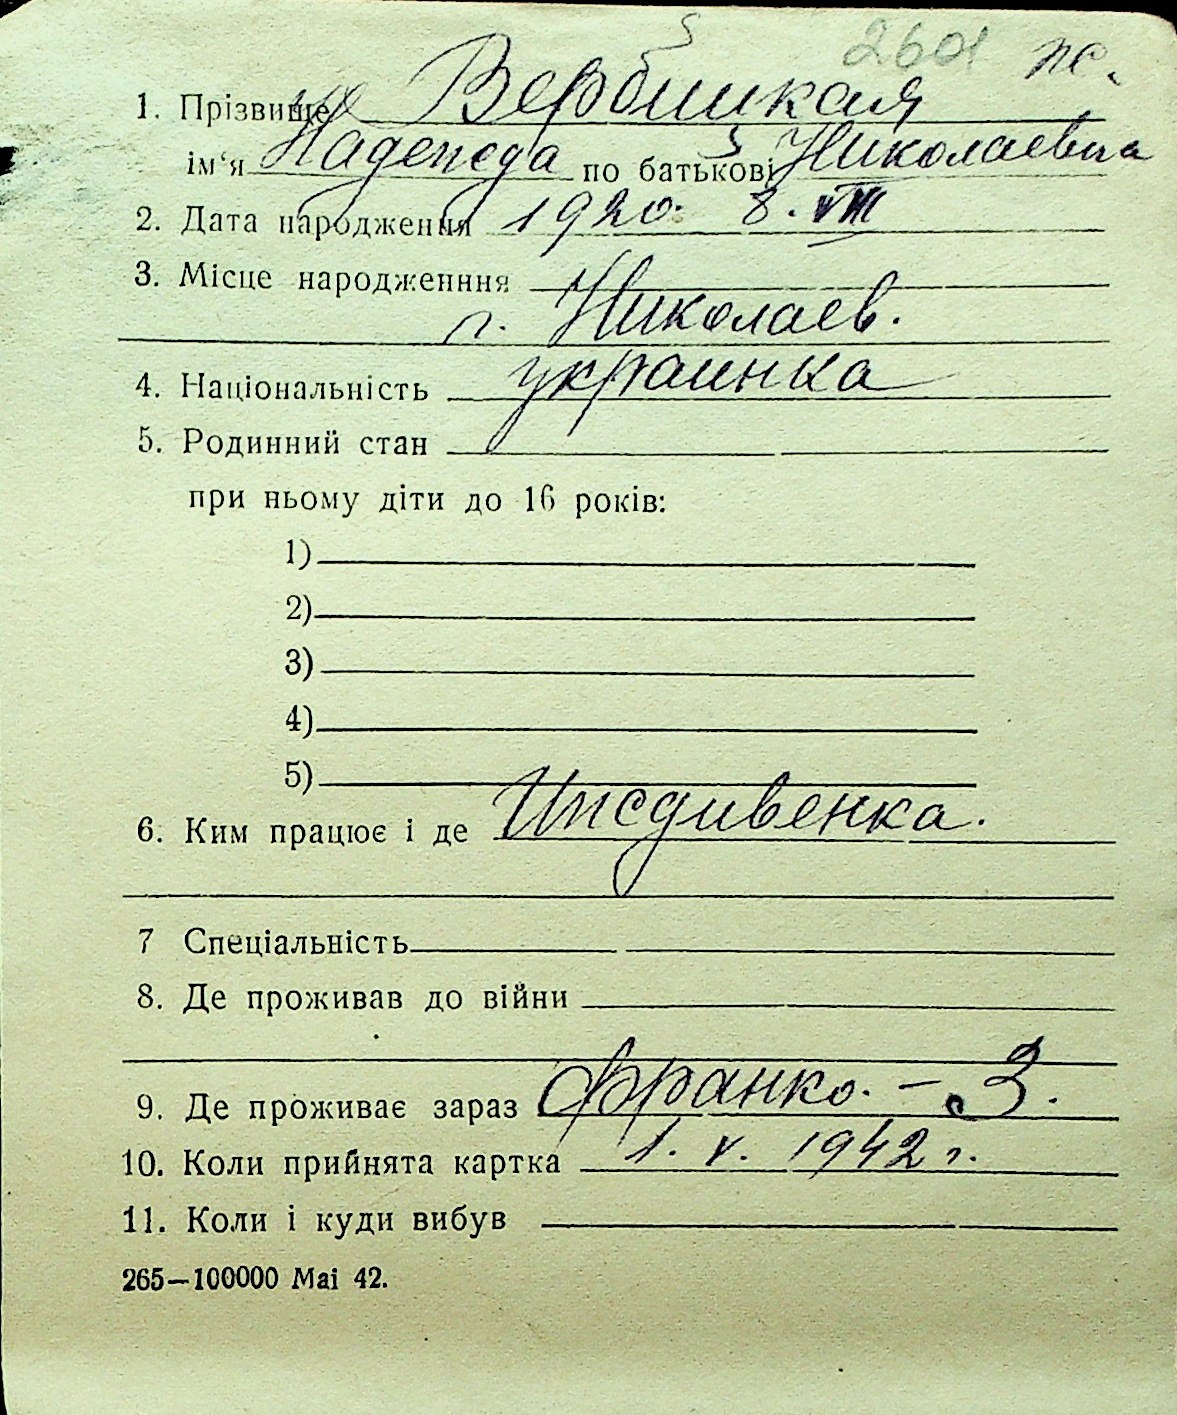 2601 ж.
1. Прізвище Вербицкая
ім‘я Надежда по батькові Николаевна
2. Дата народження 1920. 8. VIII
3. Місце народженння
г. Николаев.
4. Національність украинка
5. Родинний стан
при ньому діти до 16 років:
1)
2)
3)
4)
5)
6. Ким працює і де Иждивенка.
7 Спеціальність
8. Де проживав до війни
9. Де проживає зараз Франко. – 3.
10. Коли прийнята картка 1. V. 1942 г.
11. Коли і куди вибув
265—100000 Mai 42.